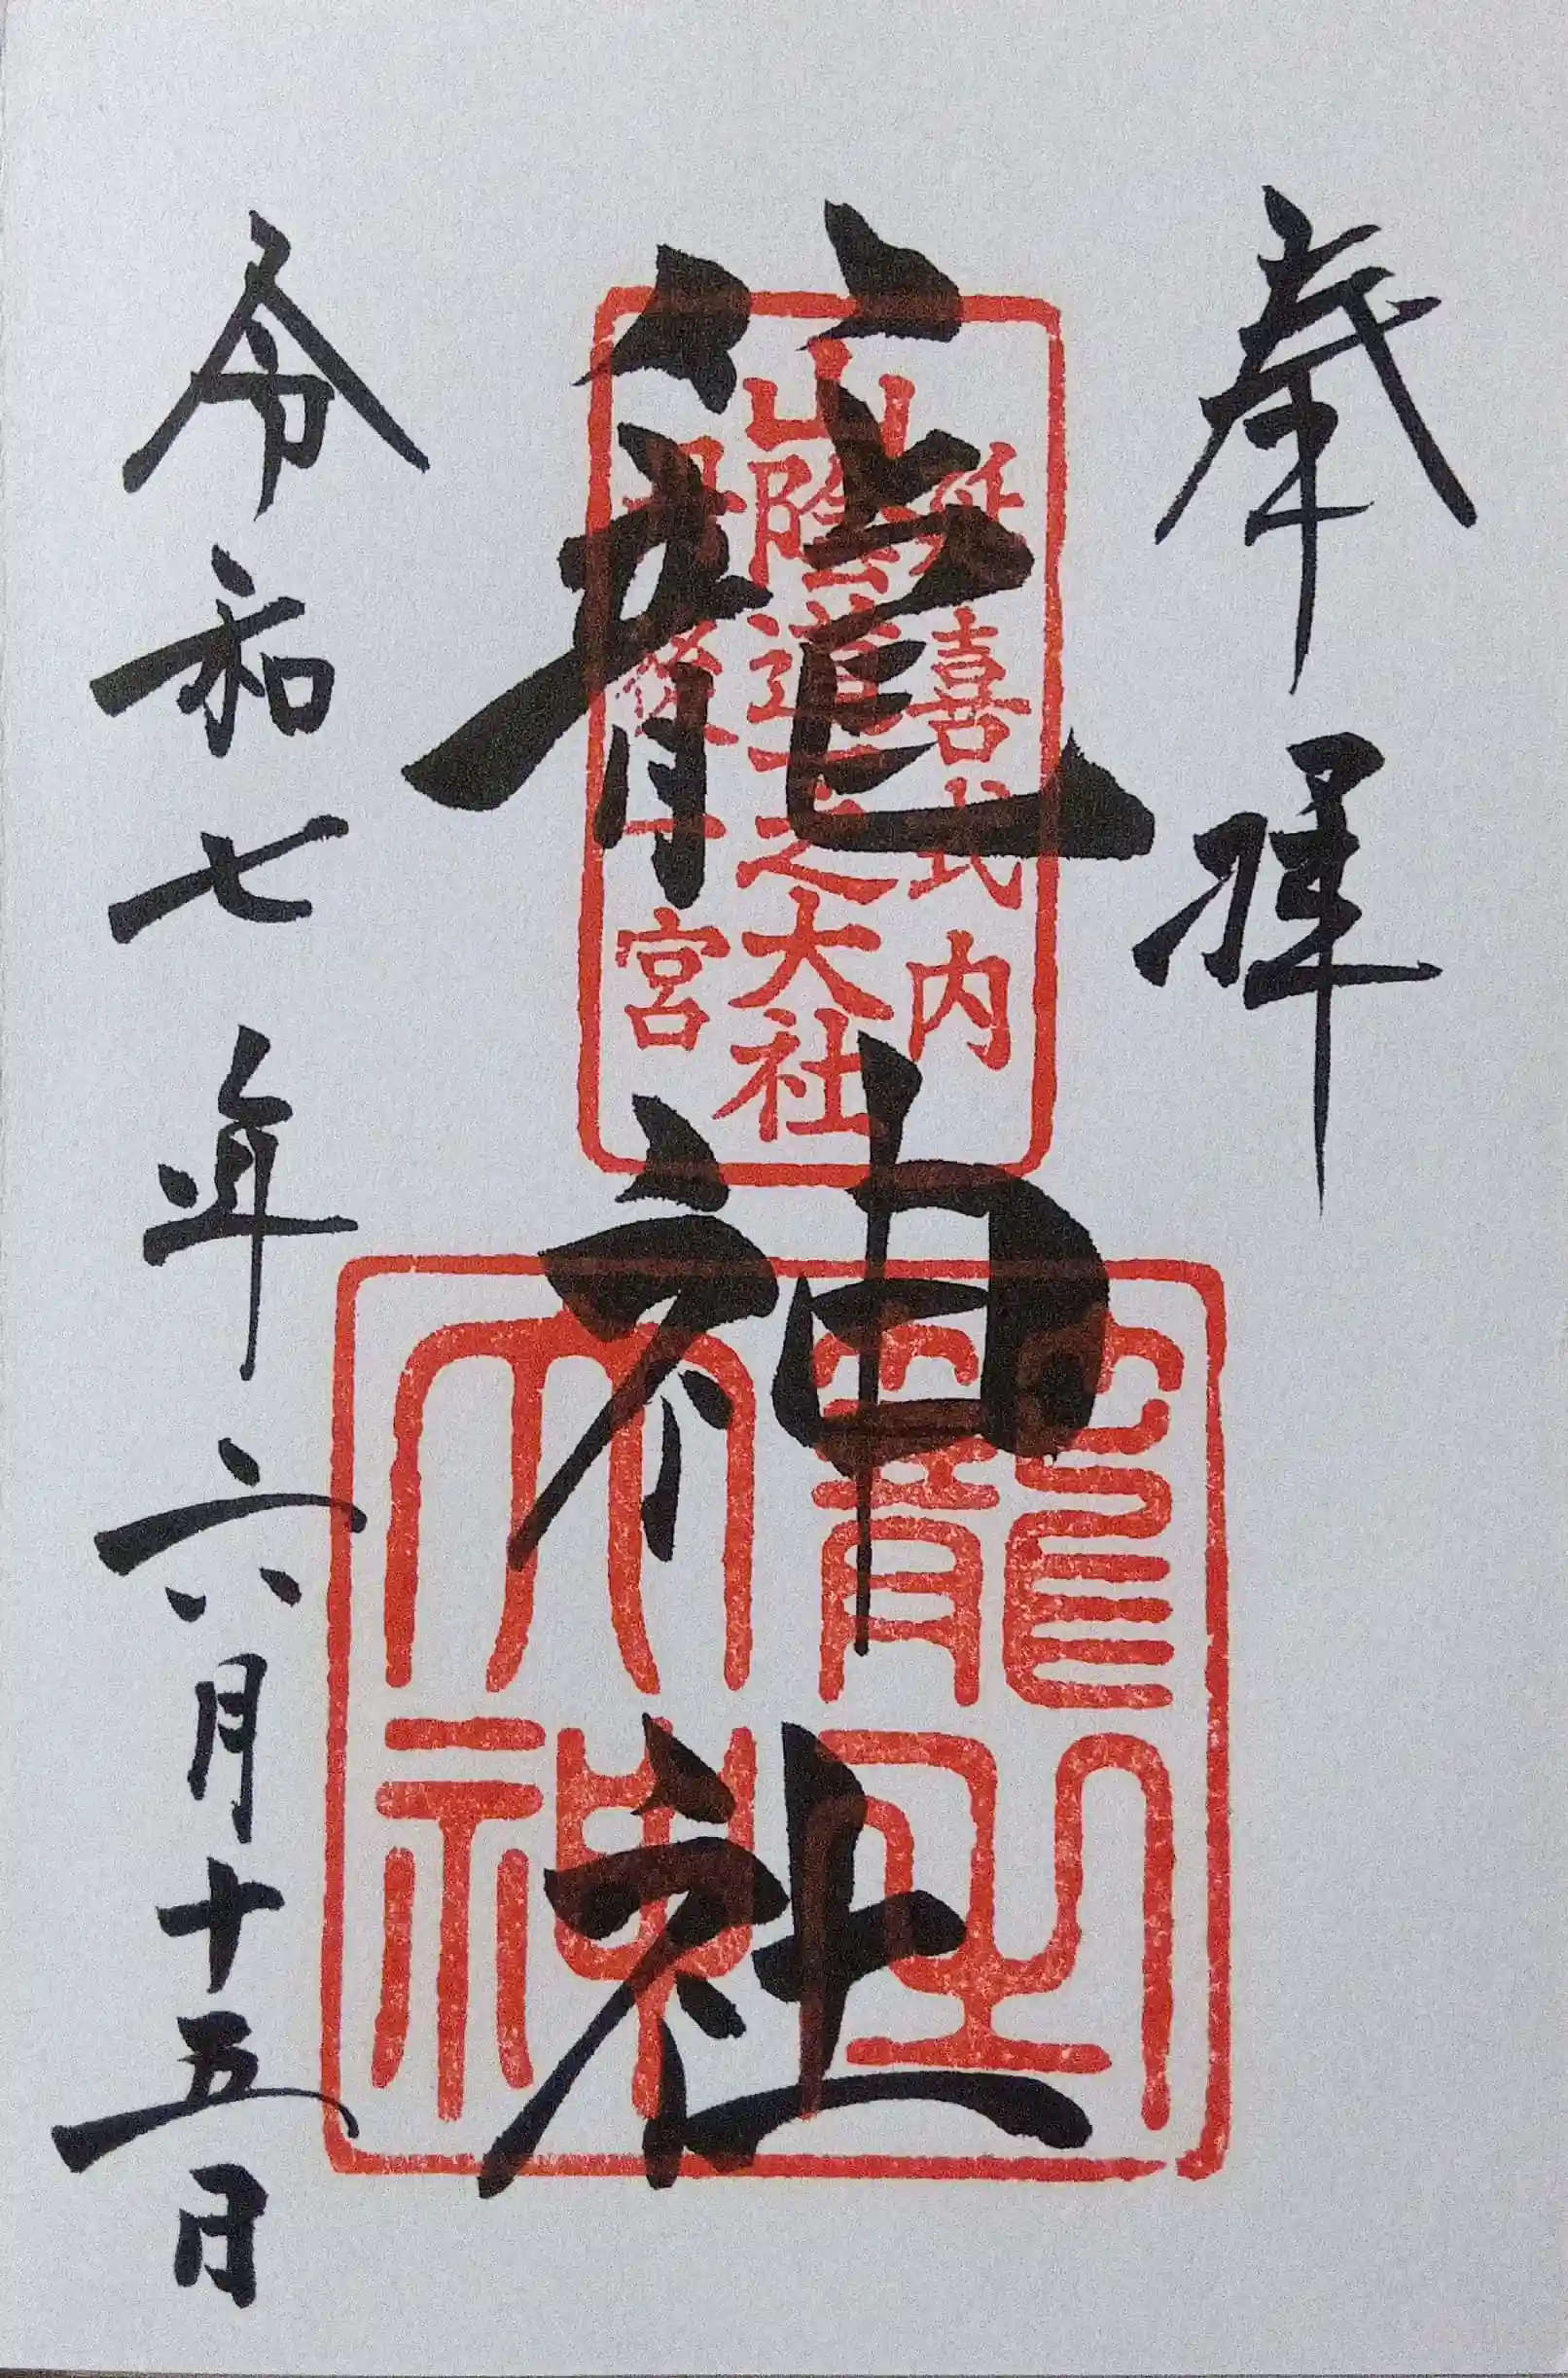 奉拝
延喜式内
山陰道一之大社
丹後一宮
籠神社
籠
大神
令和七年六月十五日